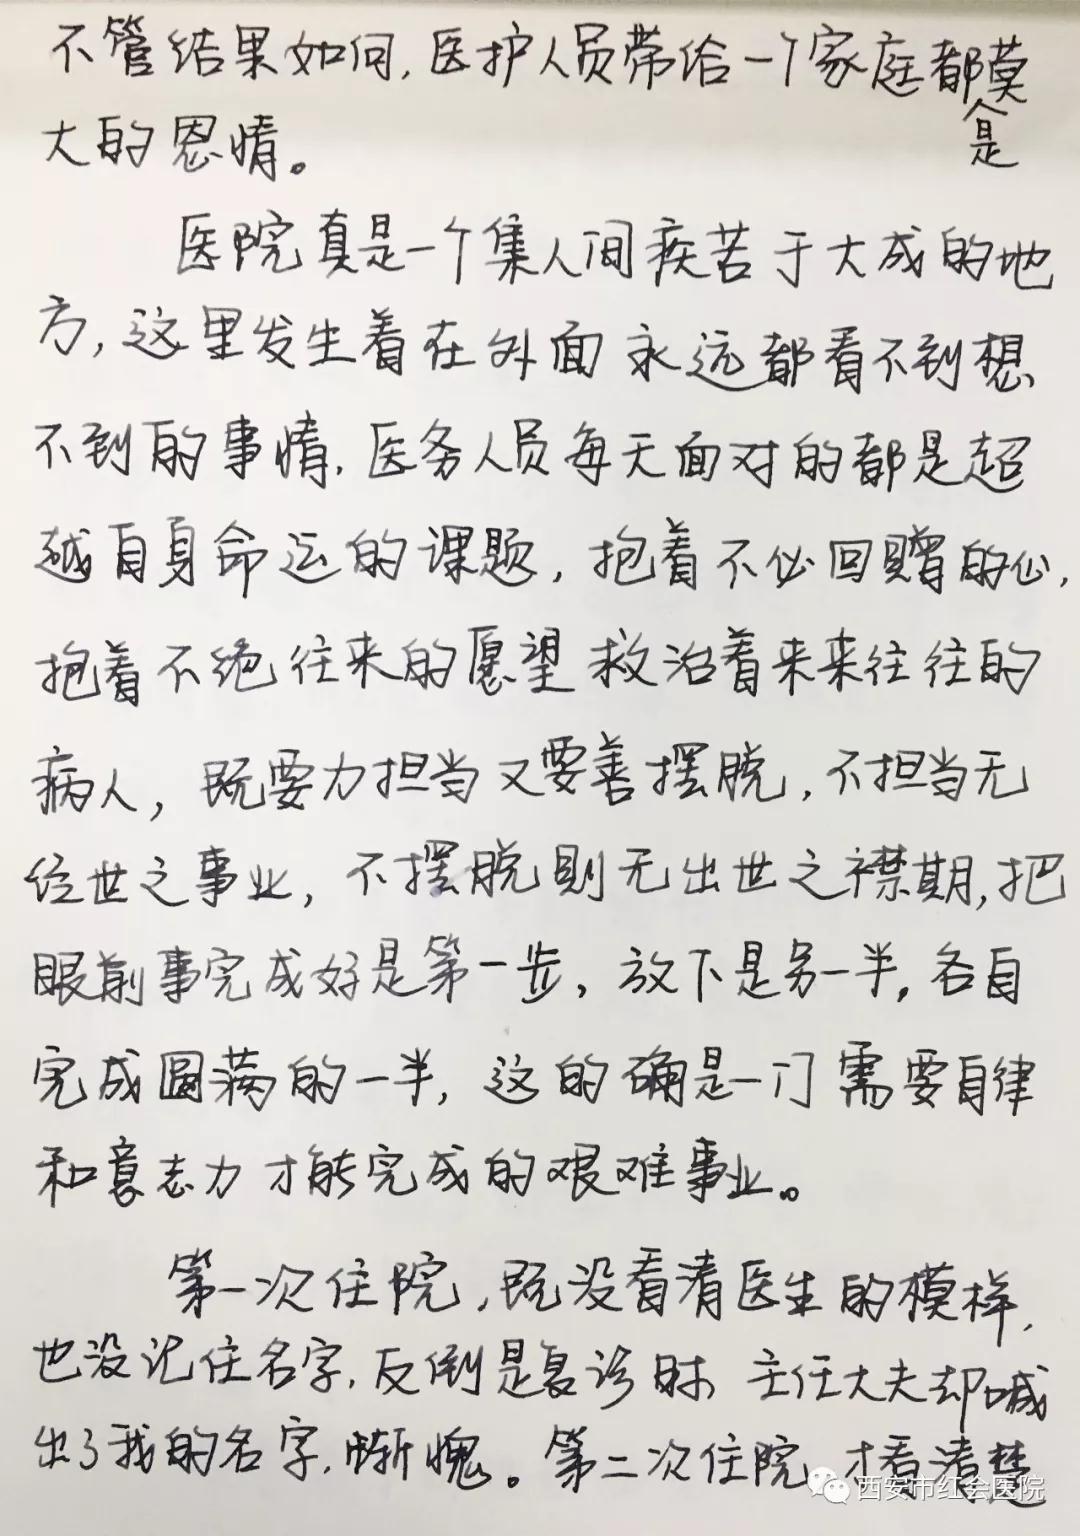 不管结果如何，医护人员带给一个家庭都是莫
大的恩情。
医院真是一个集人间疾苦于大成的地
方，这里发生着在外面永远都看不到想
不到的事情，医务人员每天面对的都是超
越自身命运的课题，抱着不必回赠的心，
抱着不绝往来的愿望救治着来来往往的
病人，既要力担当又要善摆脱，不担当无
经世之事业，不摆脱则无出世之襟期，把
眼前事完成好是第一步，放下是另一半，各自
完成圆满的一半，这的确是一门需要自律
和意志力才能完成的艰难事业。
第一次住院，既没看清医生的模样，
也没记住名字，反倒是复诊时主任大夫却喊
出了我的名字，惭愧。第二次住院，才看清楚
西安市红会医院